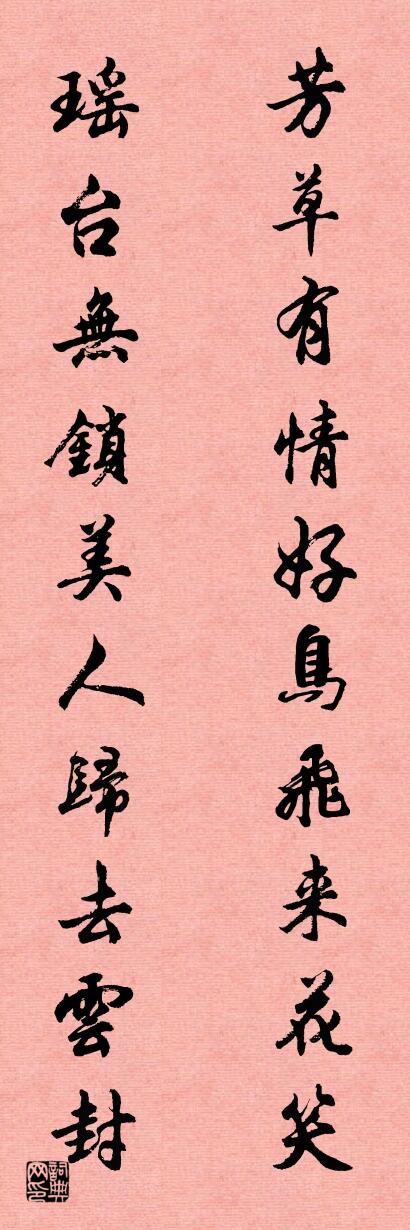 芳草有情好鳥飛来花笑
瑶台無鎖美人歸去雲封
詞典网印